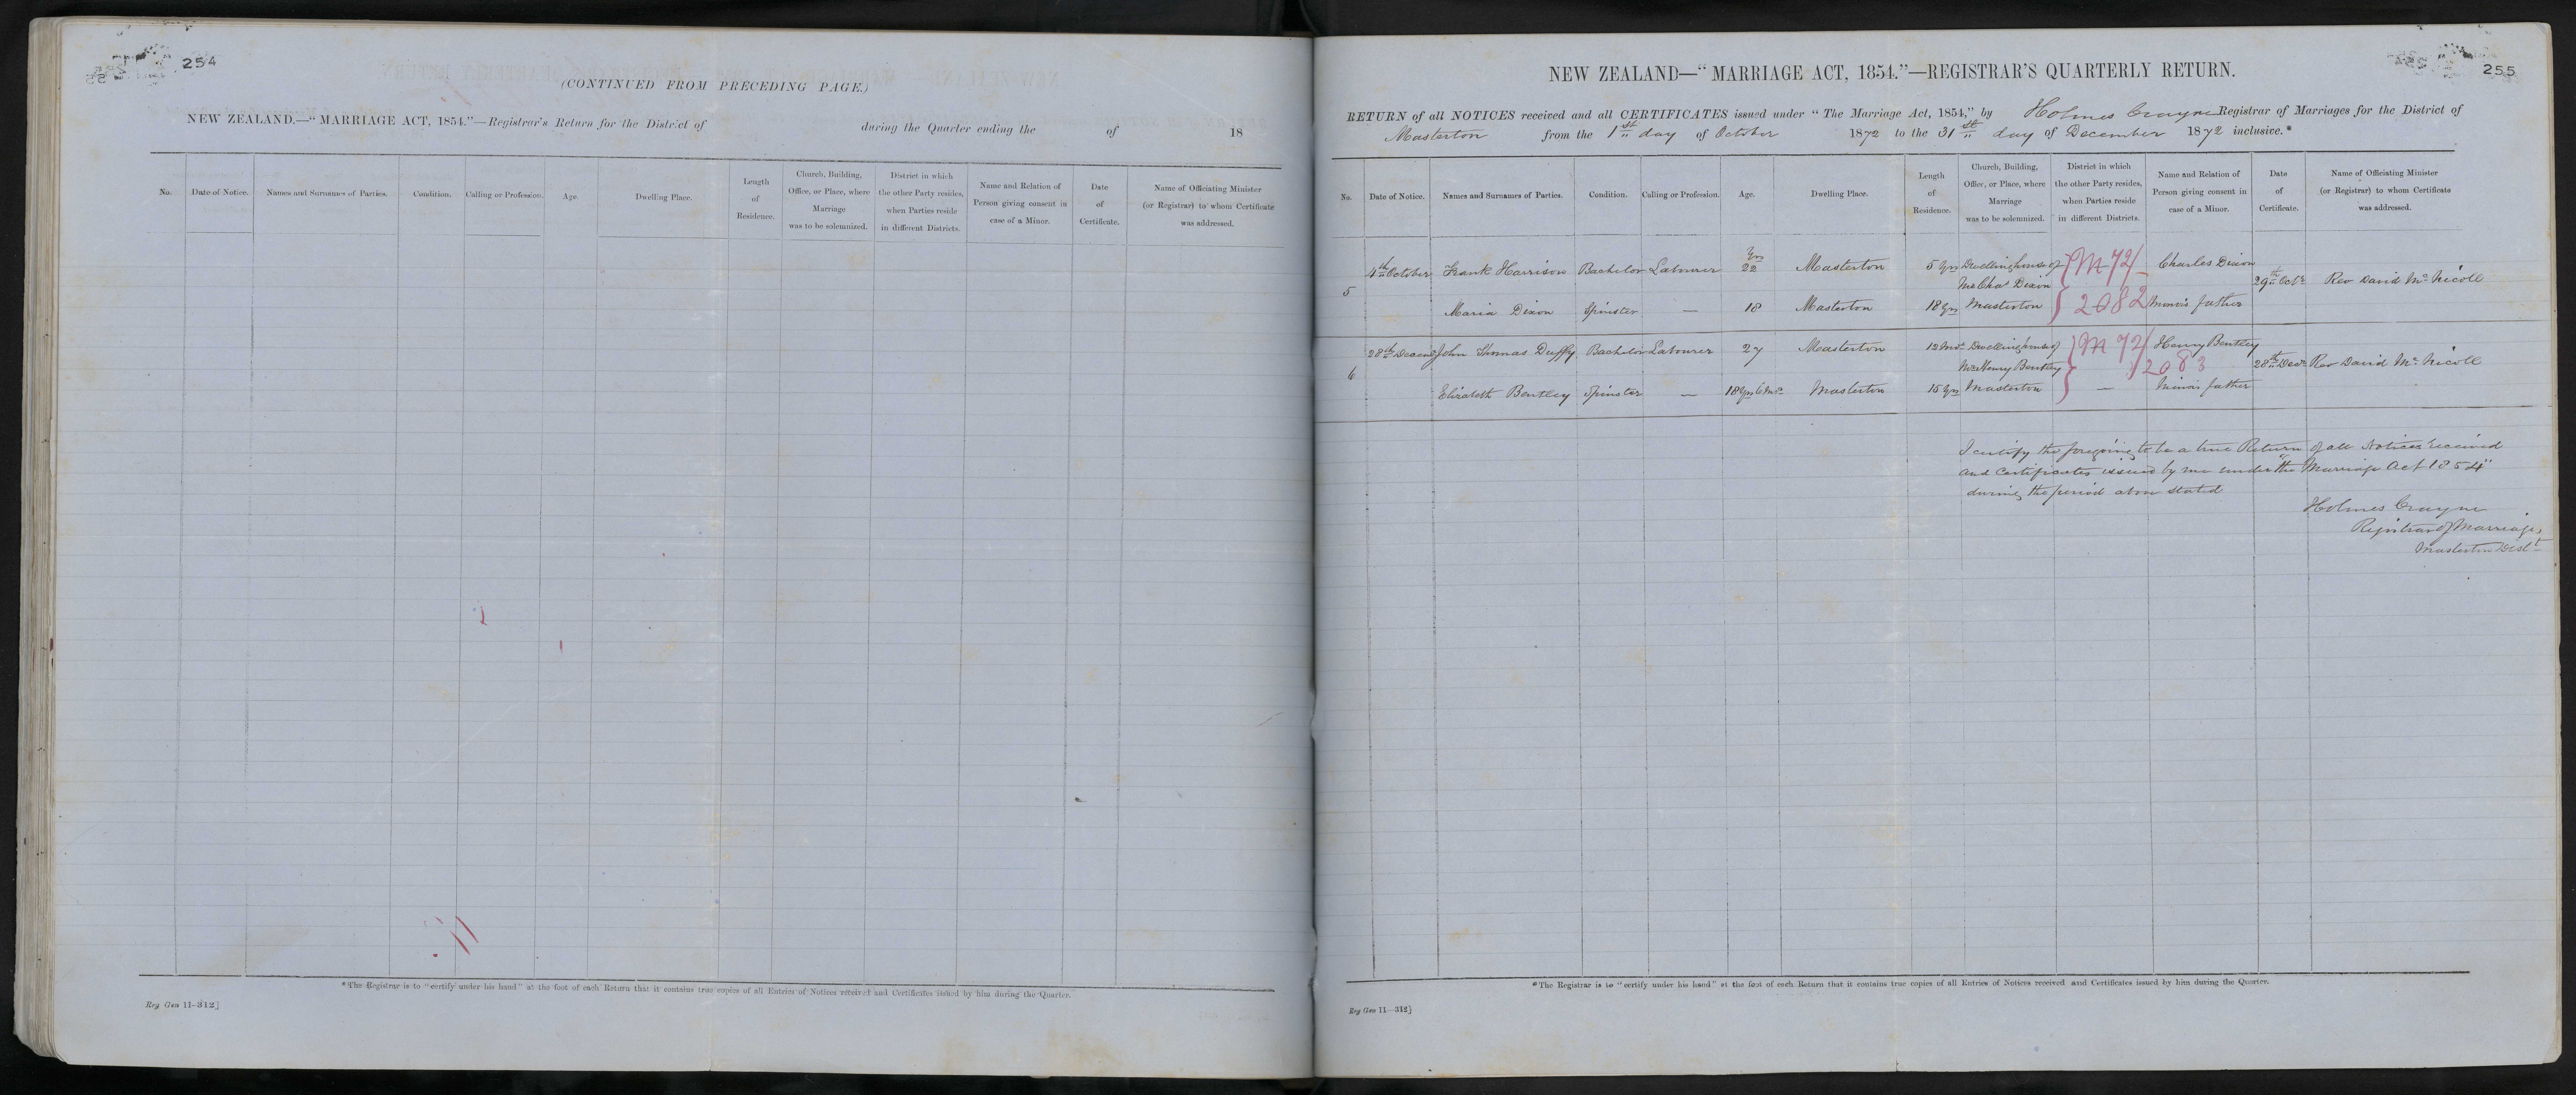 254
(CONTINUED FROM PRECEDING PAGE.)
NEW ZEALAND.—"MARRIAGE ACT, 1854."—Registrar's Return for the District of during the Quarter ending the of 18
No. Date of Notice. Names and Surnames of Parties. Condition. Calling or Profession. Age. Dwelling Place. Length of Residence. Church, Building, Office, or Place, where Marriage was to be solemnized. District in which the other Party resides, when Parties reside in different Districts. Name and Relation of Person giving consent in case of a Minor. Date of Certificate. Name of Officiating Minister (or Registrar) to whom Certificate was addressed.
*The Registrar is to "certify under his hand" at the foot of each Return that it contains true copies of all Entries of Notices received and Certificates issued by him during the Quarter.
Reg Gen 11—312]
255
NEW ZEALAND—"MARRIAGE ACT, 1854."—REGISTRAR'S QUARTERLY RETURN.
RETURN of all NOTICES received and all CERTIFICATES issued under "The Marriage Act, 1854," by Holmes Crayne Registrar of Marriages for the District of
Masterton from the 1st day of October 1872 to the 31st day of December 1872 inclusive.*
No. Date of Notice. Names and Surnames of Parties. Condition. Calling or Profession. Age. Dwelling Place. Length of Residence. Church, Building, Office, or Place, where Marriage was to be solemnized. District in which the other Party resides, when Parties reside in different Districts. Name and Relation of Person giving consent in case of a Minor. Date of Certificate. Name of Officiating Minister (or Registrar) to whom Certificate was addressed.
4th October Frank Harrison Bachelor Labourer 22 Yrs Masterton 5 Yrs Dwelling house of M 72/ Charles Dixon
5 Mr Chas Dixon 29th Octr Rev David Mc Nicoll
Maria Dixon Spinster — 18 Masterton 18 Yrs Masterton 2082 Minor's father
28th Decemr John Thomas Duffy Bachelor Labourer 27 Masterton 12 Mos Dwelling house of M 72/ Henry Bentley
6 Mr Henry Bentley 2083 28th Decr Rev David Mc Nicoll
Elizabeth Bentley Spinster — 18 Yrs 6 Mos Masterton 15 Yrs Masterton — Minor's father
I certify the foregoing to be a true Return of all Notices received
and Certificates issued by me under "the Marriage Act 1854"
during the period above stated
Holmes Crayne
Registrar of Marriages
Masterton Dist
*The Registrar is to "certify under his hand" at the foot of each Return that it contains true copies of all Entries of Notices received and Certificates issued by him during the Quarter.
Reg Gen 11—312]